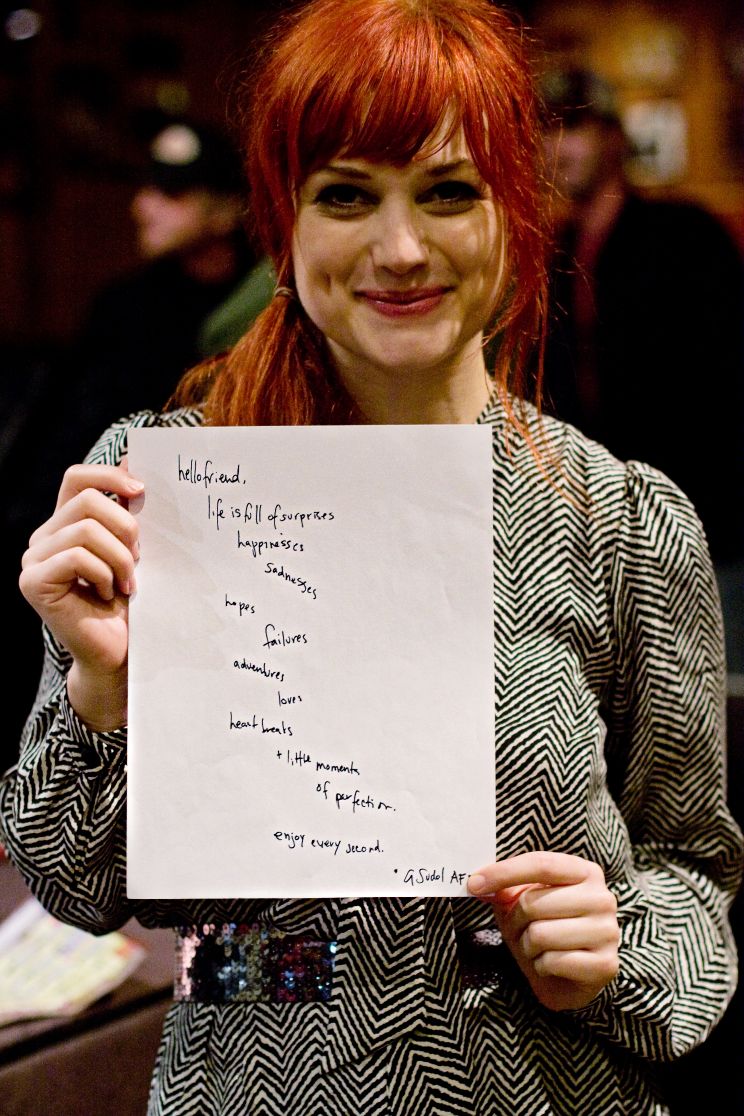 hello friend,
life is full of surprises
happinesses
sadnesses
hopes
failures
adventures
loves
heartbreaks
+ little moments
of perfection.
enjoy every second.
• G Sudol AF